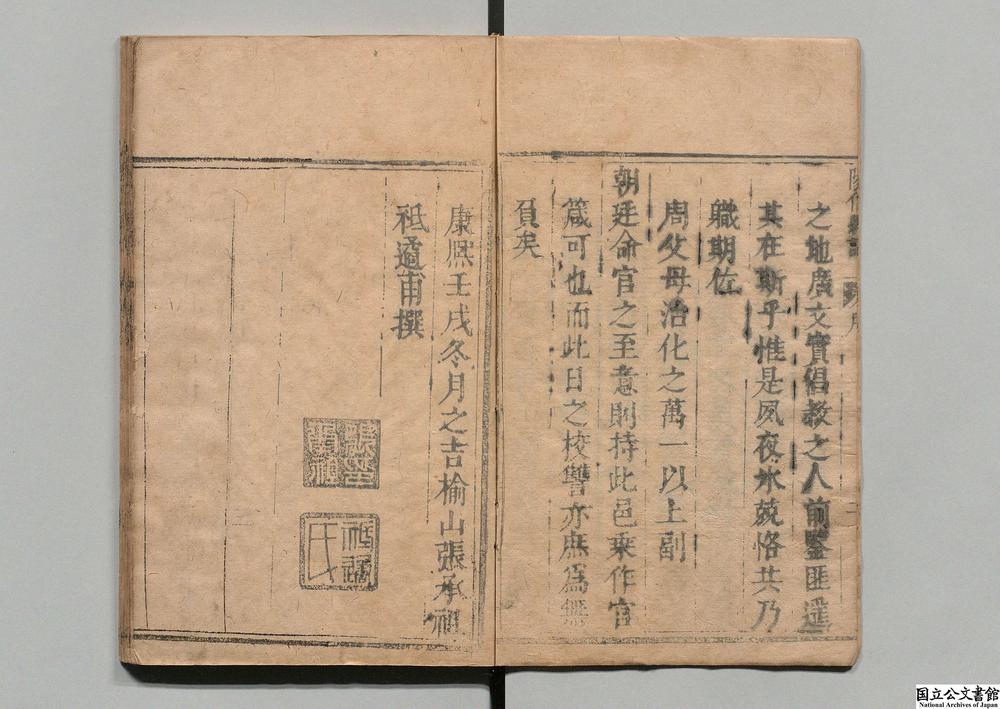 之地廣文實倡教之人前鑒匪遥
其在斯乎惟是夙夜氷兢恪共乃
職期佐
周父母治化之萬一以上副
朝廷命官之至意則持此邑乗作官
箴可也而此日之校讐亦庶為無
負矣
康熈壬戌冬月之吉榆山張承祖
祗遹甫撰
国立公文書館
National Archives of Japan